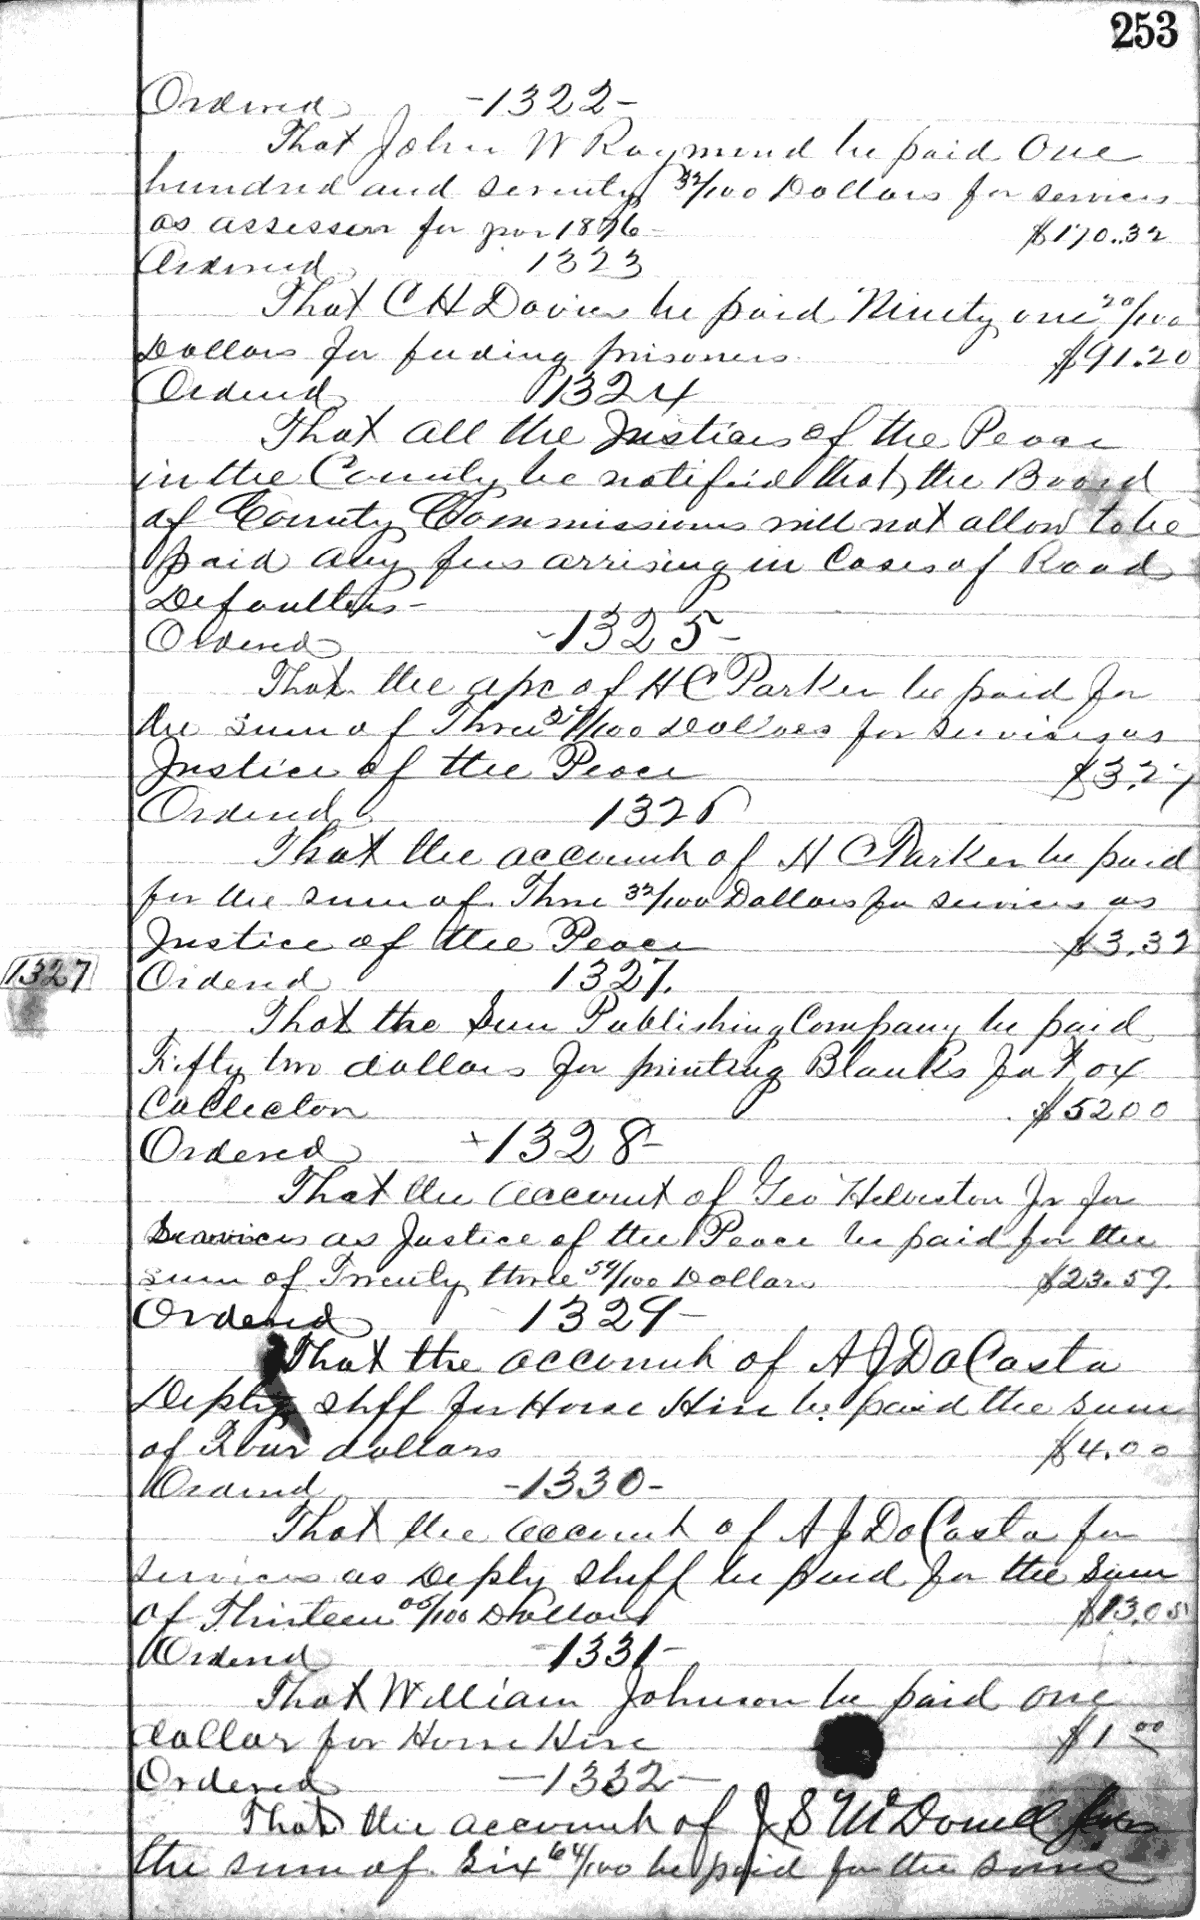 253
Ordered -1322-
That John W Raymond be paid One
hundred and seventy 32/100 Dollars for services
as assessor for year 1896- $170.32
Ordered 1323
That C H Davies be paid Ninety one 20/100
Dollars for feeding prisoners. $91.20
Ordered 1324
That all the Justices of the Peace
in the County be notified that the Board
of County Commissioners will not allow to be
paid any fees arrising in Cases of Road
Defaulters-
Ordered -1325-
That the apc of H C Parker be paid for
the sum of Three 27/100 Dollars for services as
Justice of the Peace $3.27
Ordered 1326
That the account of H C Parker be paid
for the sum of Three 32/100 Dollars for services as
Justice of the Peace $3.32
1327 Ordered 1327.
That the Sun Publishing Company be paid
Fifty two dollars for printing Blanks for Tax
Collector $52 00
Ordered -1328-
That the account of Geo Helveston Jr for
Services as Justice of the Peace be paid for the
sum of Twenty three 59/100 Dollars $23.59.
Ordered -1329-
That the account of A J DaCosta
Depty Shff for Horse Hire be paid the sum
of Four dollars $4.00
Ordered -1330-
That the account of A J DaCosta for
services as Depty Shff be paid for the Sum
of Thirteen 05/100 Dollars $13.05
Ordered -1331-
That William Johnson be paid one
dollar for Horse Hire $1 00
Ordered -1332-
That the account of J S McDonell for
the sum of Six 64/100 be paid for the same